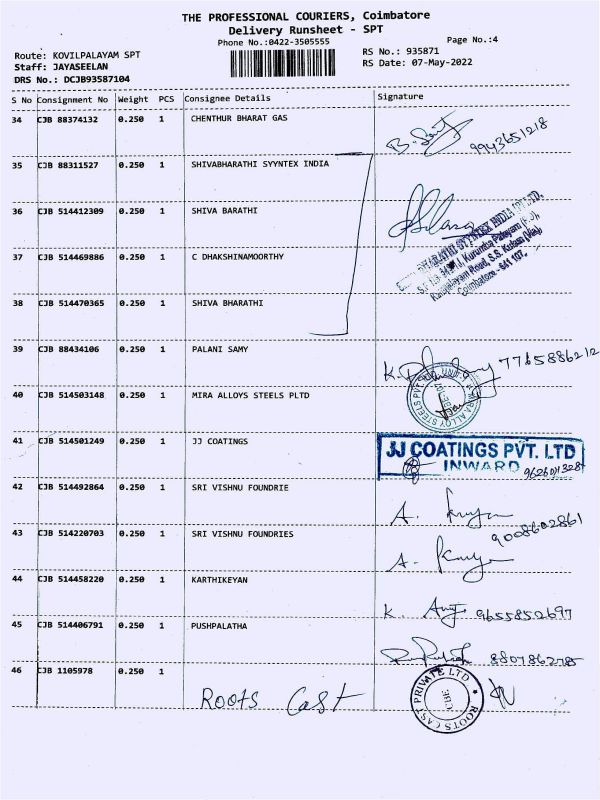 THE PROFESSIONAL COURIERS, Coimbatore
Delivery Runsheet - SPT
Phone No.:0422-3505555
Page No.:4
Route: KOVILPALAYAM SPT
RS No.: 935871
Staff: JAYASEELAN
RS Date: 07-May-2022
DRS No.: DCJB93587104
S No Consignment No Weight PCS Consignee Details Signature
34 CJB 88374132 0.250 1 CHENTHUR BHARAT GAS
9943651218
35 CJB 88311527 0.250 1 SHIVABHARATHI SYYNTEX INDIA
36 CJB 514412309 0.250 1 SHIVA BARATHI
BHARATHI SYYNTEX INDIA
Kurumba Palayam
Road, S.S. Kulam (Via),
Coimbatore - 641 107.
37 CJB 514469886 0.250 1 C DHAKSHINAMOORTHY
38 CJB 514470365 0.250 1 SHIVA BHARATHI
39 CJB 88434106 0.250 1 PALANI SAMY
7765886212
40 CJB 514503148 0.250 1 MIRA ALLOYS STEELS PLTD
MIRA ALLOY STEELS PVT.
41 CJB 514501249 0.250 1 JJ COATINGS
JJ COATINGS PVT. LTD
INWARD
42 CJB 514492864 0.250 1 SRI VISHNU FOUNDRIE
43 CJB 514220703 0.250 1 SRI VISHNU FOUNDRIES
9008602861
44 CJB 514458220 0.250 1 KARTHIKEYAN
9655852697
45 CJB 514406791 0.250 1 PUSHPALATHA
8807862785
46 CJB 1105978 0.250 1
Roots Cast
ROOTS CAST PRIVATE LTD
CBE